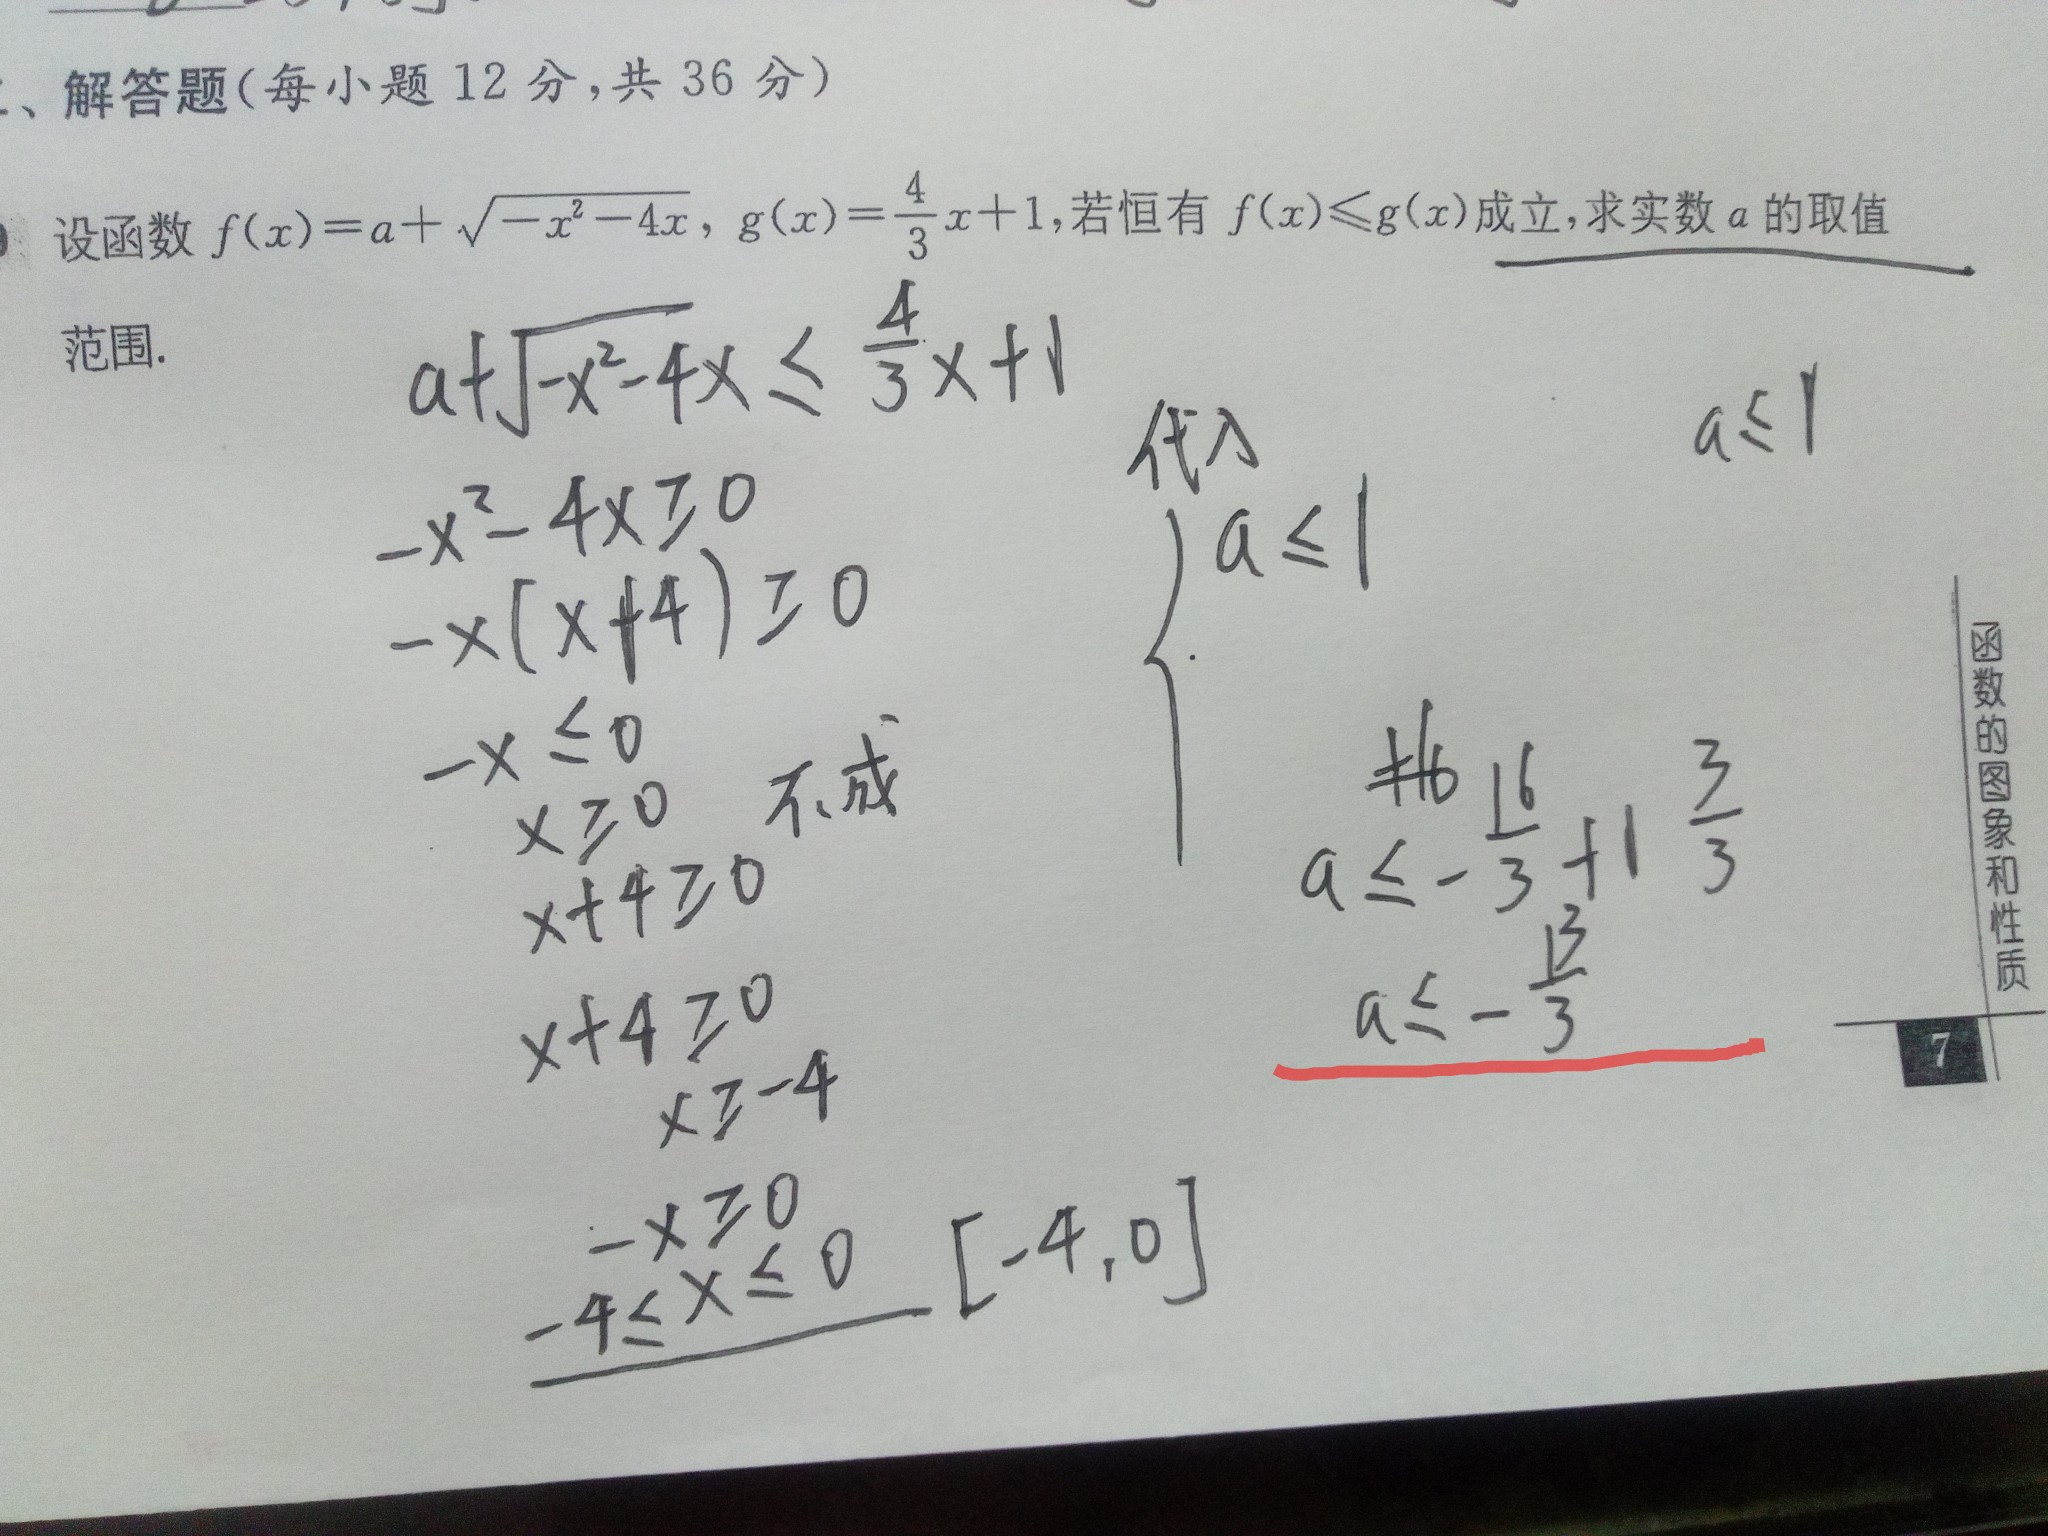 、解答题(每小题 12 分,共 36 分)
设函数 f(x)=a+√(-x²-4x), g(x)=4/3x+1,若恒有 f(x)≤g(x)成立,求实数 a 的取值
范围.
a+√(-x²-4x) ≤ 4/3x+1
-x²-4x≥0
-x(x+4)≥0
-x≤0
x≥0 不成
x+4≥0
x+4≥0
x≥-4
-x≥0
-4≤x≤0 [-4,0]
代入
a≤1
a≤-16/3+1 3/3
a≤-13/3
a≤1
函数的图象和性质
7